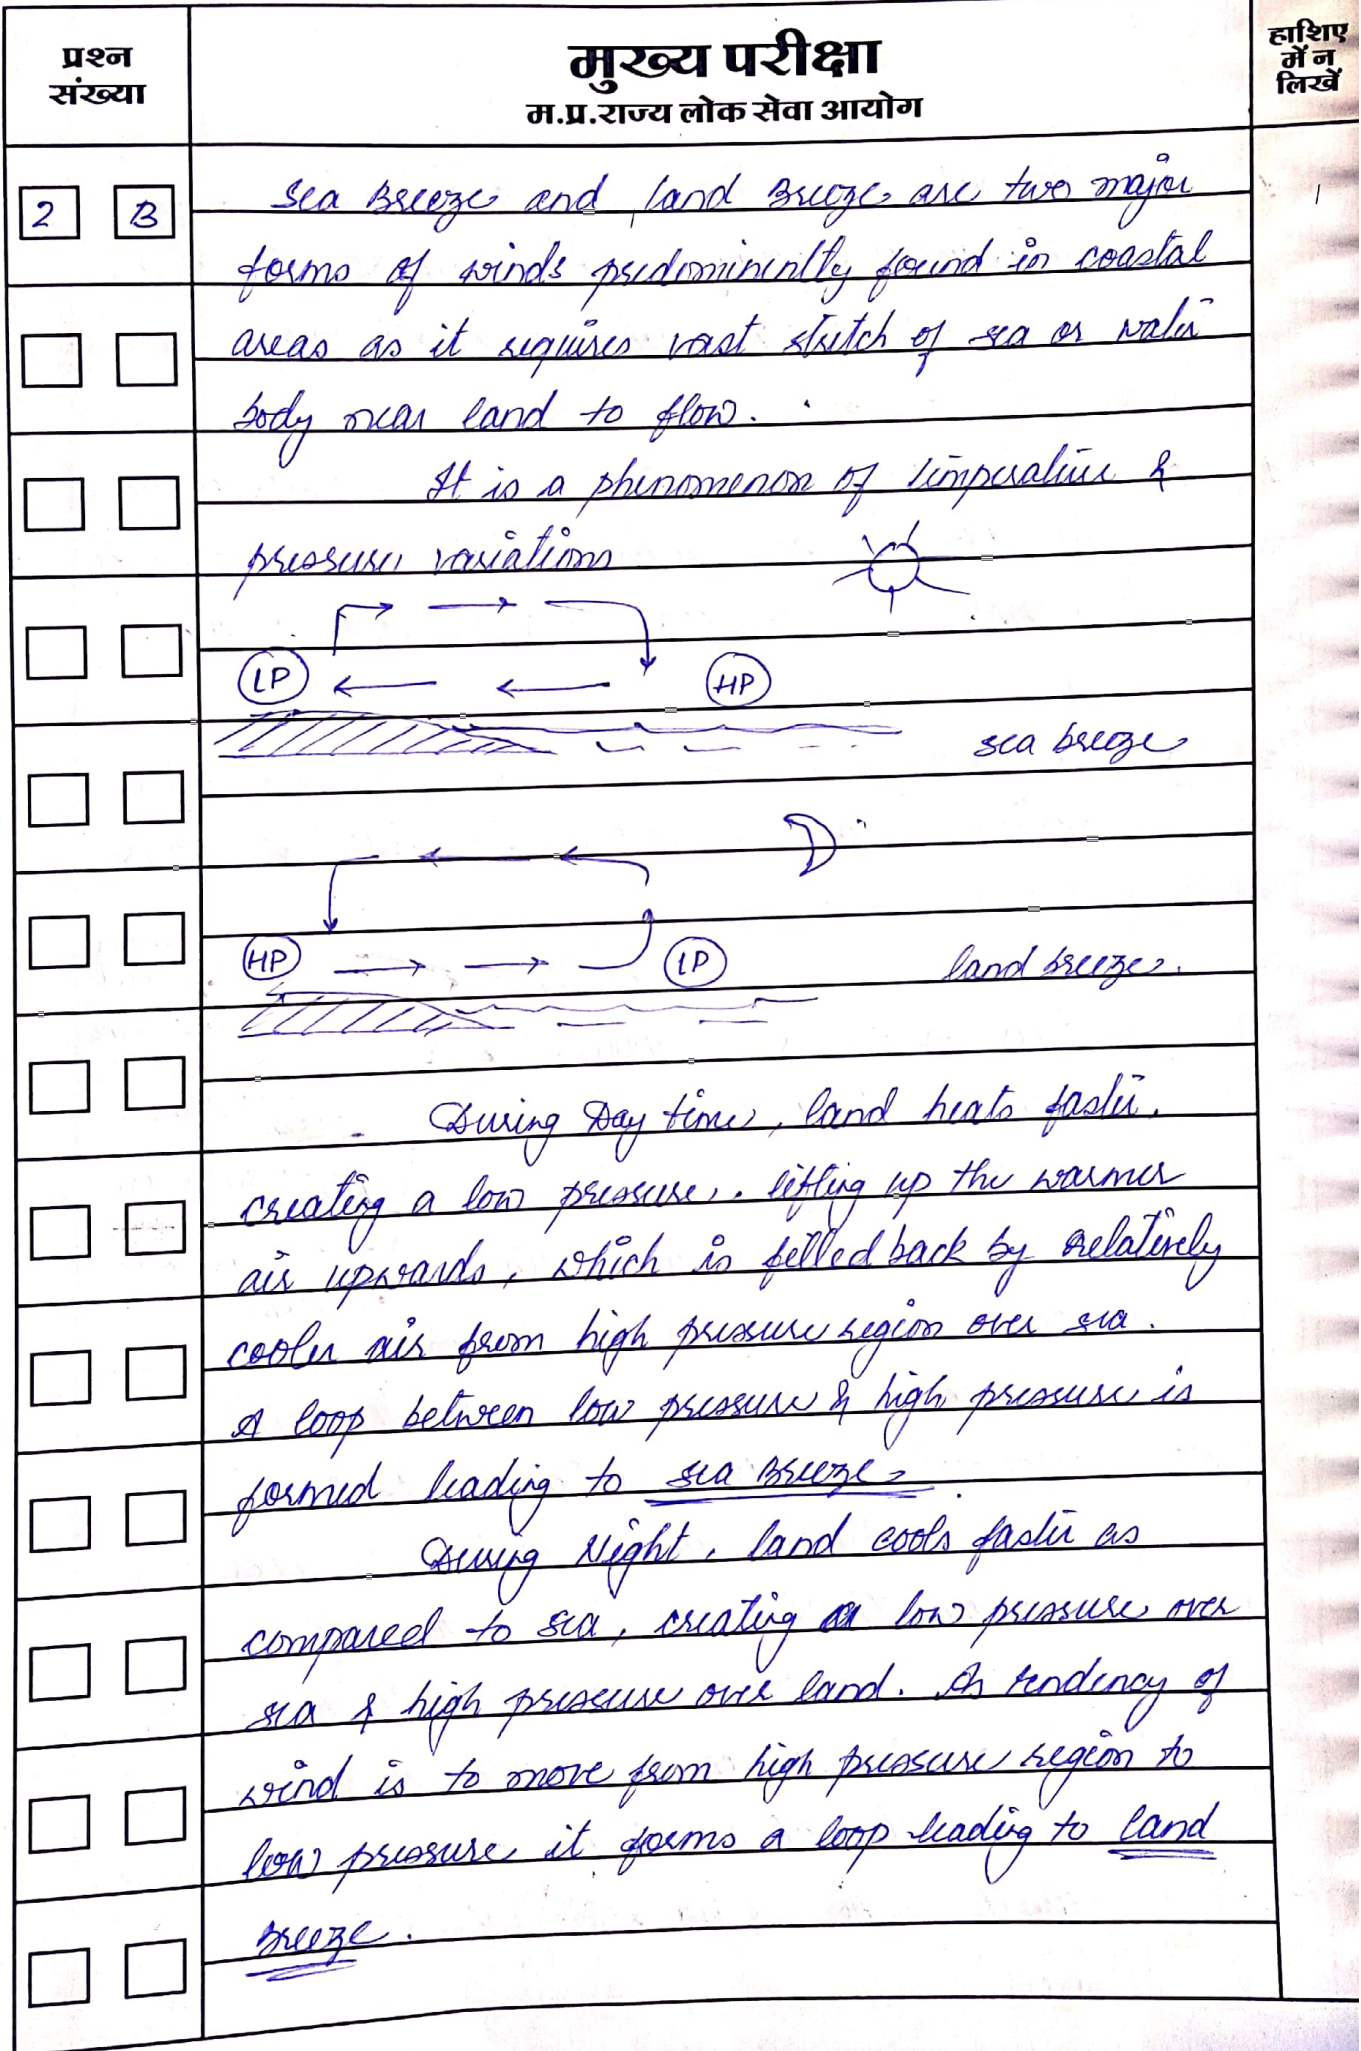 प्रश्न
संख्या
मुख्य परीक्षा
म.प्र.राज्य लोक सेवा आयोग
हाशिए
में न
लिखें
2 B
Sea Breeze and land Breeze are two major
forms of winds predominently found in coastal
areas as it requires vast stretch of sea or water
body near land to flow.
It is a phenomenon of temperature &
pressure variations
LP
HP
sea breeze
HP
LP
land breeze.
During Day time, land heats faster.
creating a low pressure. lifting up the warmer
air upwards, which is filled back by relatively
cooler air from high pressure region over sea.
A loop between low pressure & high pressure is
formed leading to sea Breeze.
During Night, land cools faster as
compared to sea, creating a low pressure over
sea & high pressure over land. As tendency of
wind is to move from high pressure region to
low pressure it forms a loop leading to land
Breeze.